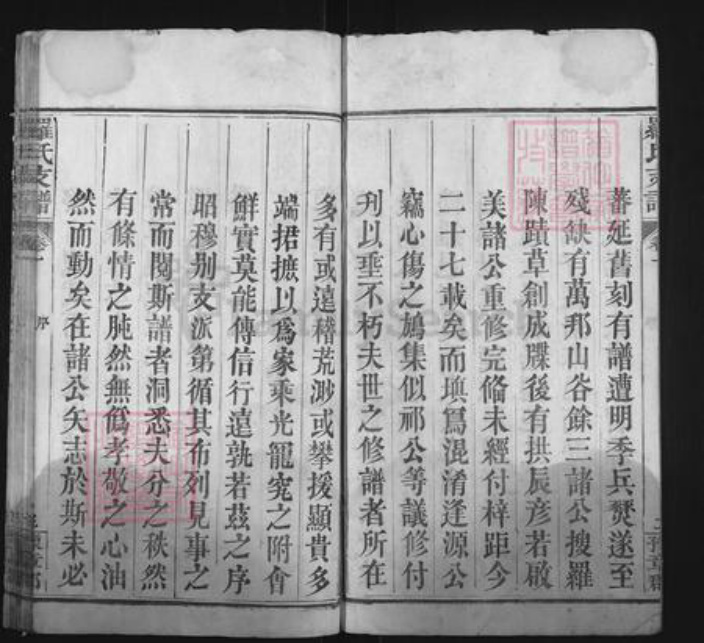 羅氏支譜
卷一
蕃延舊刻有譜遭明季兵燹遂至
殘缺有萬邦山谷餘三諸公搜羅
陳蹟草創成牒後有拱辰彥若啟
美諸公重修完備未經付梓距今
二十七載矣而塤篪混淆逢源公
竊心傷之鳩集似祁公等議修付
刋以垂不朽夫世之修譜者所在
多有或遠稽荒渺或攀援顯貴多
端捃摭以爲家乘光寵究之附會
鮮實莫能傳信行遠孰若茲之序
昭穆別支派第循其布列見事之
常而閱斯譜者洞悉夫分之秩然
有條情之肫然無僞孝敬之心油
然而動矣在諸公矢志於斯未必
羅氏支譜
卷一
序